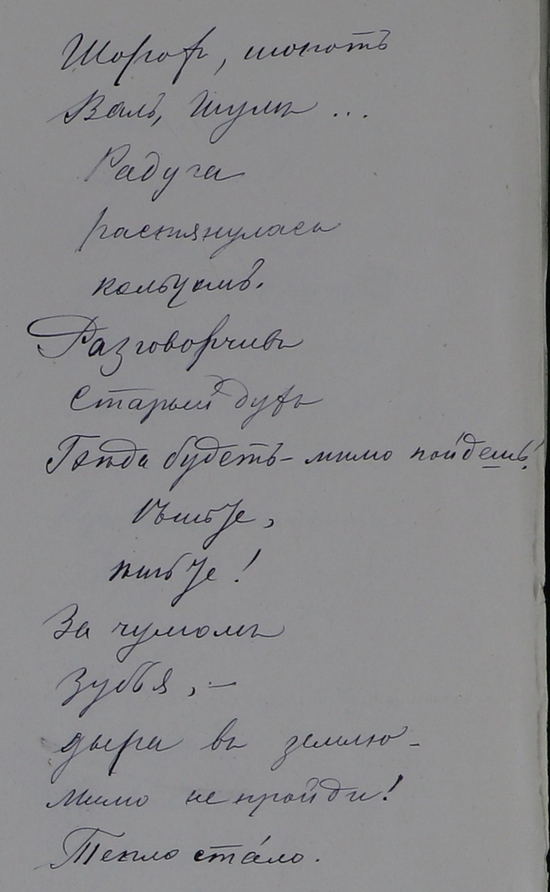 Шорохъ, шопотъ
Валъ, шумъ ...
Радуга
растянулась
кольцомъ.
Разговорчивъ
Старый дубъ
будетъ – мимо пойдешь!
За чумомъ
Зубья, –
дыра въ землю –
Мимо не пройди!
Тепло ста́ло.